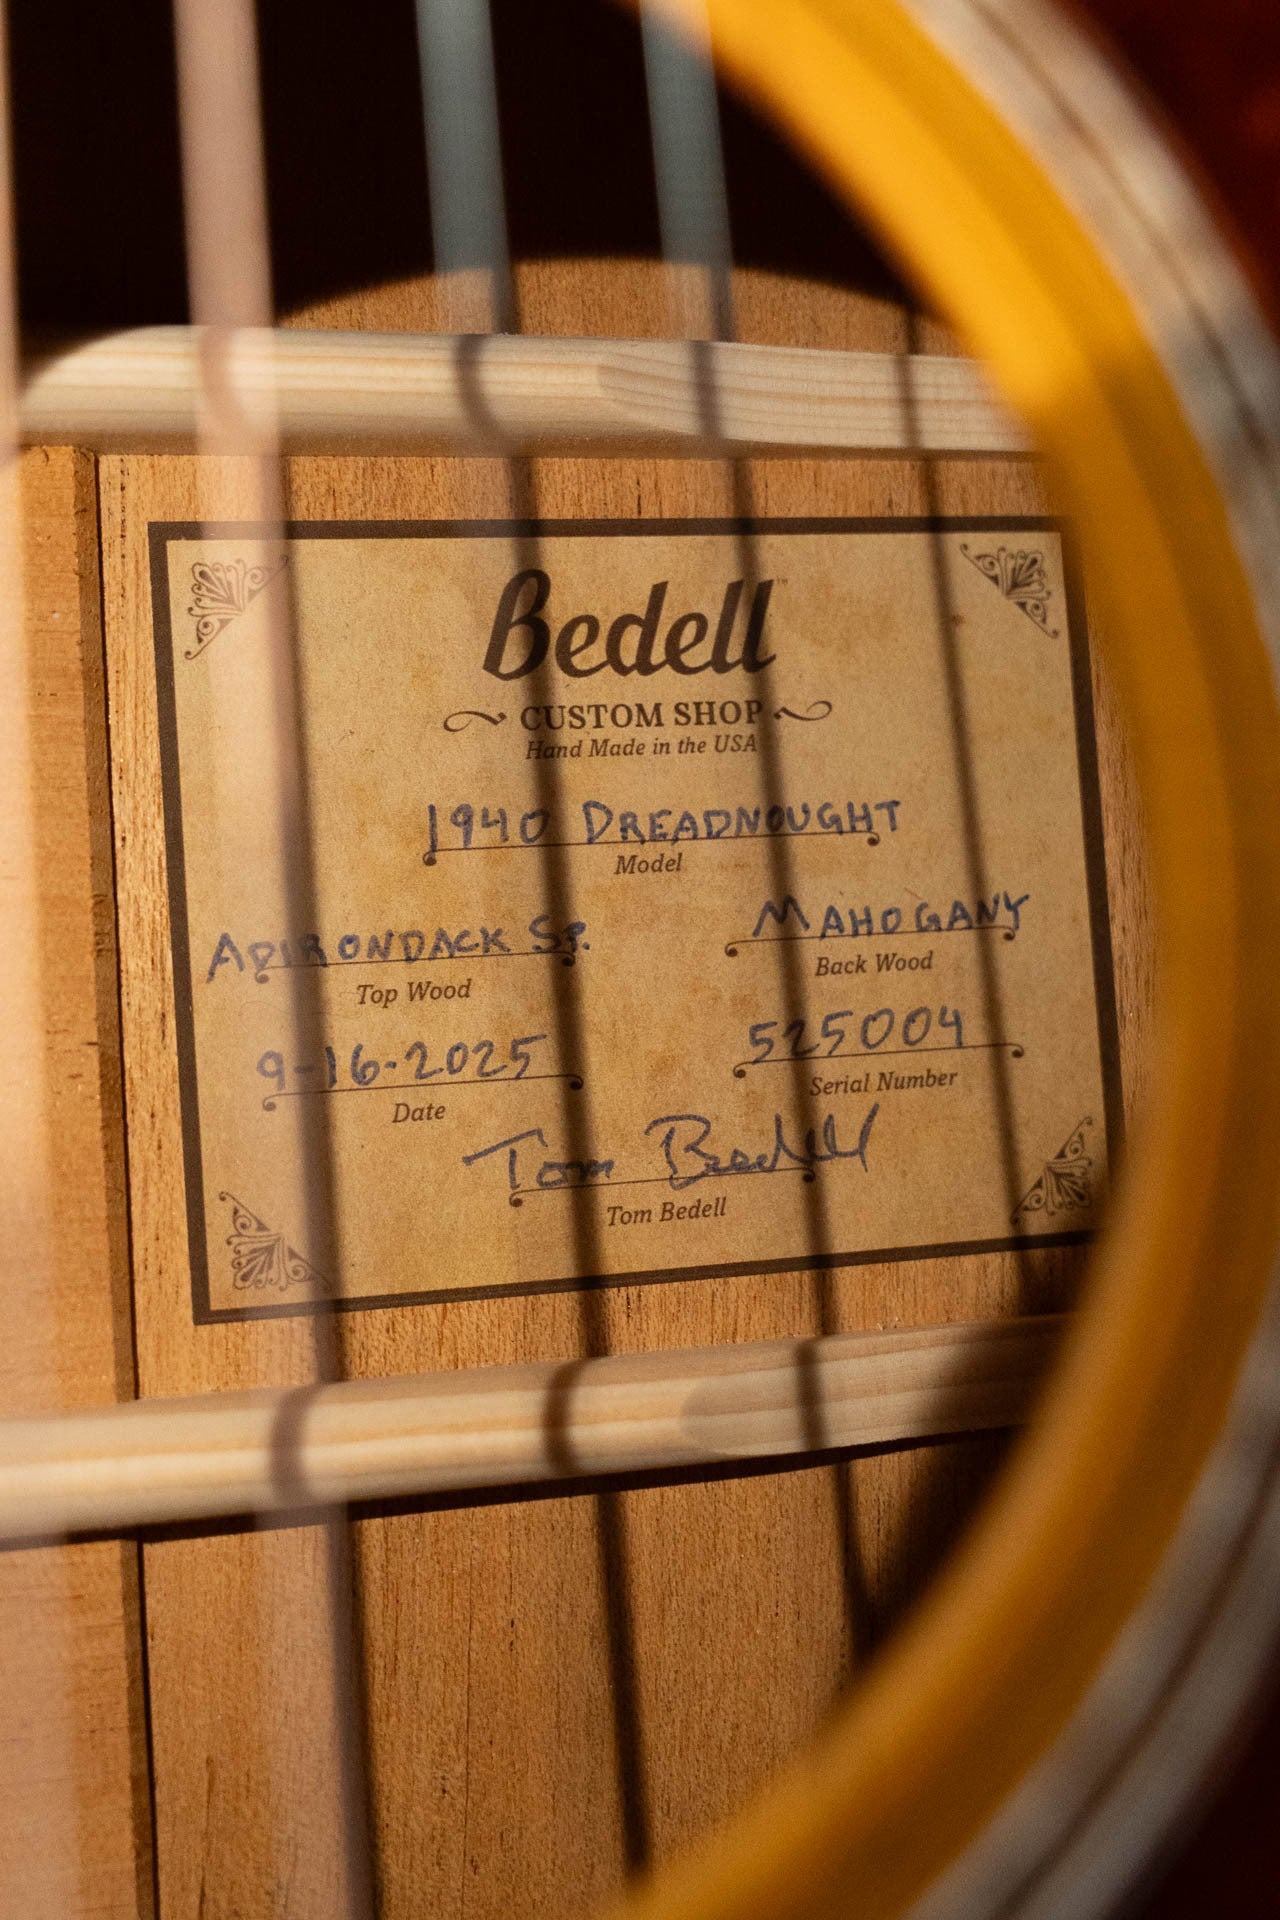 Bedell™
CUSTOM SHOP
Hand Made in the USA
1940 DREADNOUGHT
Model
ADIRONDACK SP. MAHOGANY
Top Wood Back Wood
9-16-2025 525004
Date Serial Number
Tom Bedell
Tom Bedell